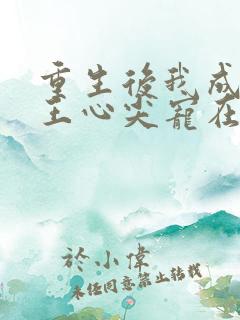 重生後我成
王心尖寵在
於小偉
未經同意禁止轉載